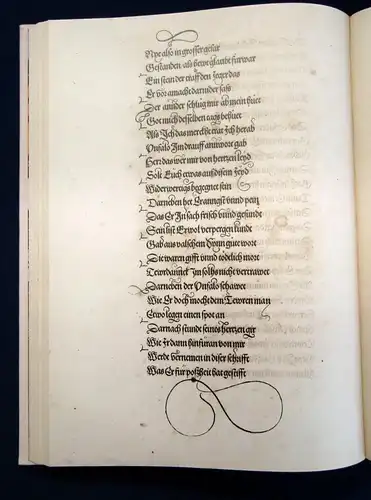 Nye also in grosser gefar
Gestanden als bey glaubt furwar
Ein stein der traff den Jeger das
Er vor amacht darnider saß
Der annder schlug mir ab mein huet
Got mich desselben tags behuet
Als Ich das mercket trat Ich herab
Unfalo Im drauff antwort gab
Herr das wer mir von hertzen leyd
Solt Euch etwas auf diser heyd
Widerwertigs begegnet sein
Darneben het Er anngst vnnd pein
Das Er In sach frisch vnnd gesundt
Sein list Er wol verpergen kundt
Gab aus valschem hertzn guete wort
Die waren gifft vnnd tödtlich mort
Tewrdannck Im solhs nicht vertrawet
Darneben der Unfalo schawet
Wie Er doch mocht dem Tewren man
Etwo legen einen spot an
Darnach stundt seines hertzen gir
Wie Ir dann hinfuran von mir
Werdt vernemen in diser schrifft
Was Er fur poßheit hat gestifft